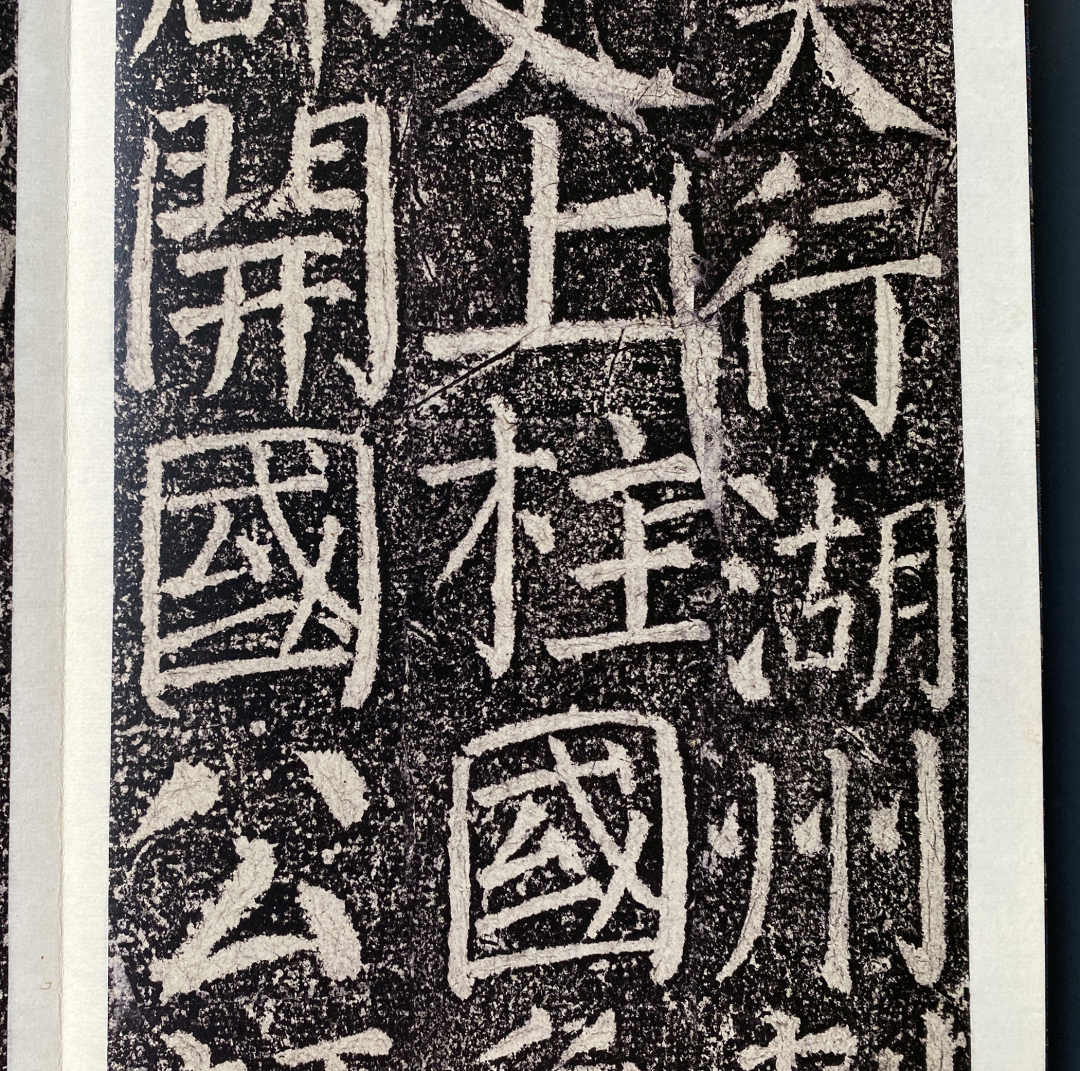 行湖州
上柱國
開國公